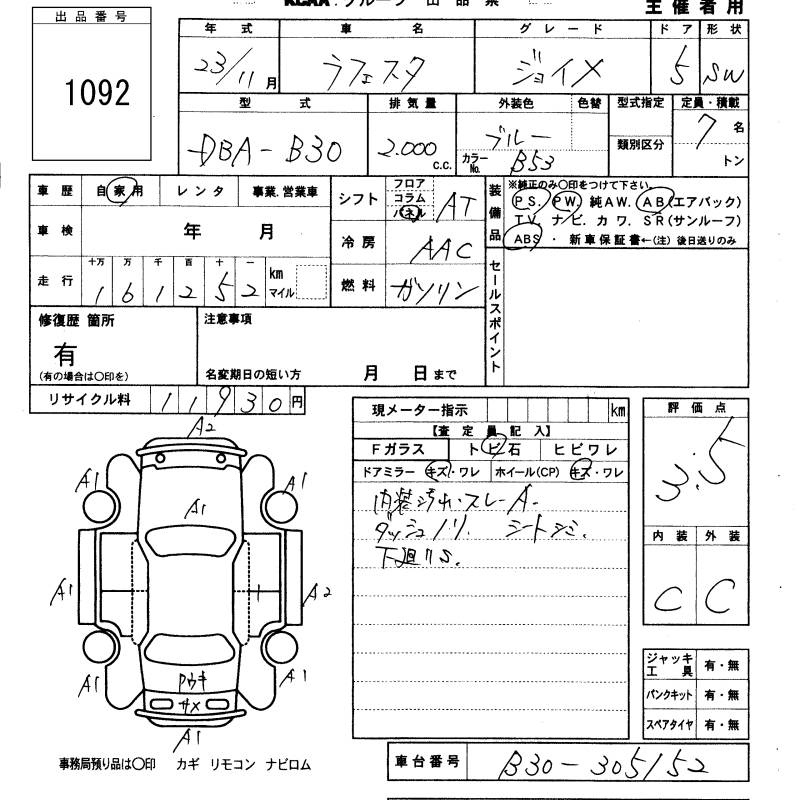 KCAA.グループ 出品票 主催者用
出品番号
1092
年式 車名 グレード ドア 形状
23/11月 ラフェスタ ジョイメ 5 SW
型式 排気量 外装色 色替 型式指定 定員・積載
DBA-B30 2.000 c.c. ブルー 7名
カラーNo. B53 類別区分 トン
車歴 自家用 レンタ 事業.営業車
シフト フロア コラム パネル AT
車検 年 月
冷房 AAC
走行 十万 万 千 百 十 一
1 6 1 2 5 2 km マイル
燃料 ガソリン
装備品 ※純正のみ〇印をつけて下さい。
PS. PW. 純AW. AB(エアバック)
TV. ナビ. カワ. SR(サンルーフ)
ABS ・ 新車保証書←(注)後日送りのみ
セールスポイント
修復歴 箇所 注意事項
有
(有の場合は〇印を) 名変期日の短い方 月 日まで
リサイクル料 11930円
現メーター指示 km
【査定員記入】
Fガラス トビ石 ヒビワレ
ドアミラー キズ・ワレ ホイール(CP) キズ・ワレ
内装汚れ・スレ-A-
ダッシュノリ. シートシミ.
下廻りS.
評価点
3.5
内装 外装
C C
A2
A1 A1
A1
A1 A2
Pウキ
サメ
A1 A1
A1
ジャッキ工具 有・無
パンクキット 有・無
スペアタイヤ 有・無
事務局預り品は〇印 カギ リモコン ナビロム
車台番号 B30-305152